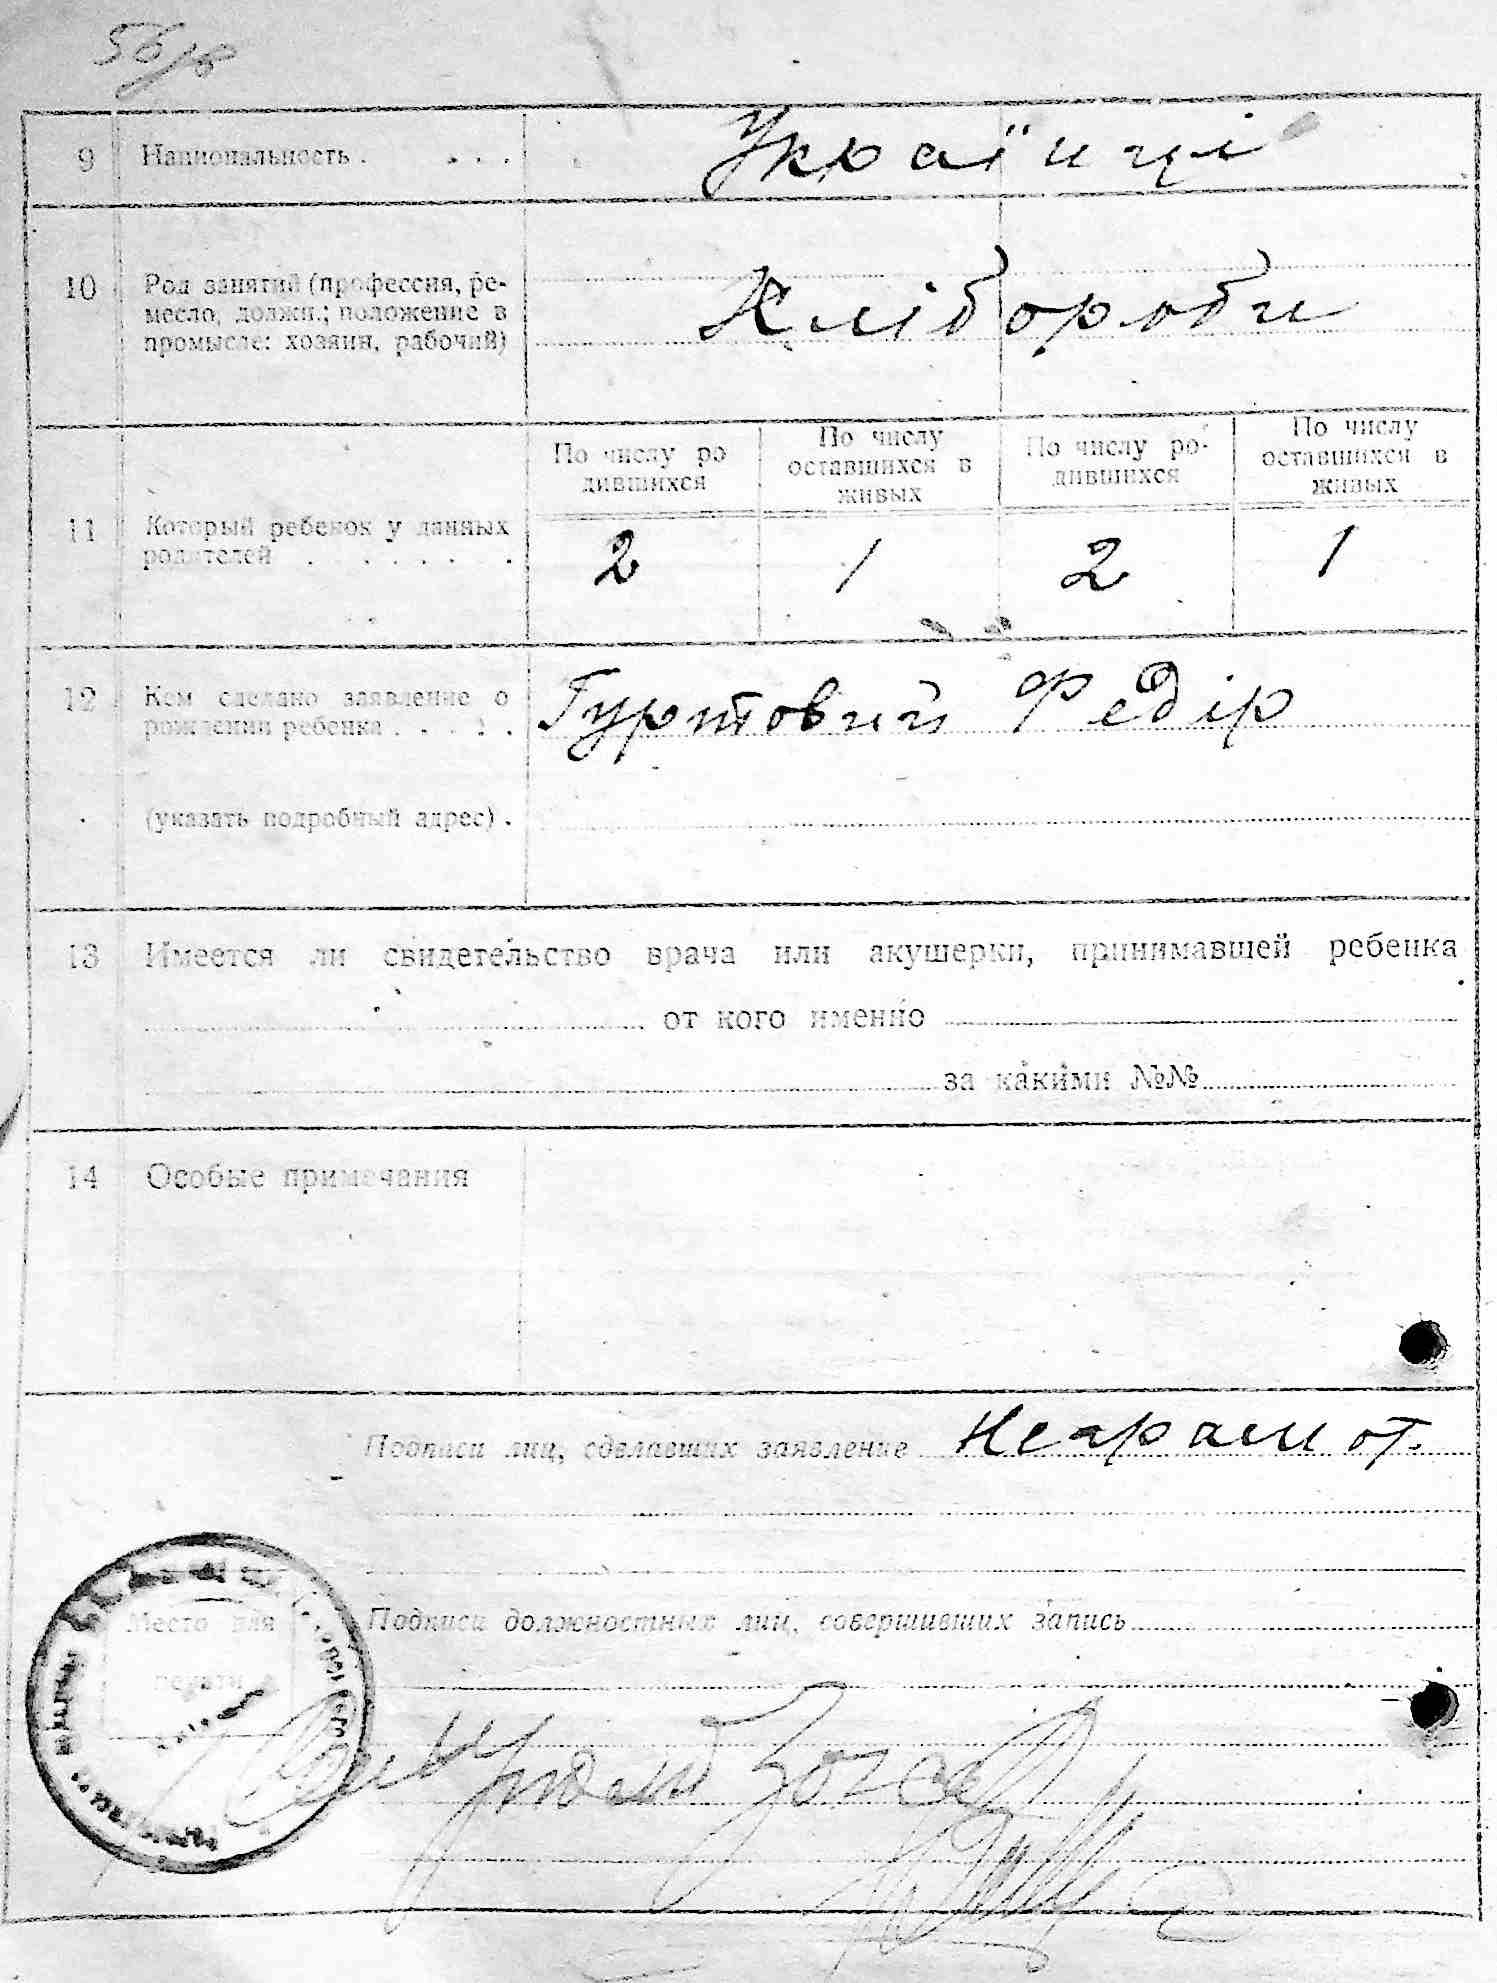 9 Национальность . . . . Українці
10 Род занятий (профессия, ре-
месло, должн.; положение в
промысле: хозяин, рабочий)
Хлібороби
По числу ро
дившихся
По числу
оставшихся в
живых
По числу ро-
дившихся
По числу
оставшихся в
живых
11 Который ребенок у данных
родителей . . . . . .
2 1 2 1
12 Кем сделано заявление о
рождении ребенка . . . .
Гуртовий Федір
(указать подробный адрес) .
13 Имеется ли свидетельство врача или акушерки, принимавшей ребенка
от кого именно
за какими №№
14 Особые примечания
Подписи лиц, сделавших заявление Неграмот.
Место для
печати
Подписи должностных лиц, совершивших запись